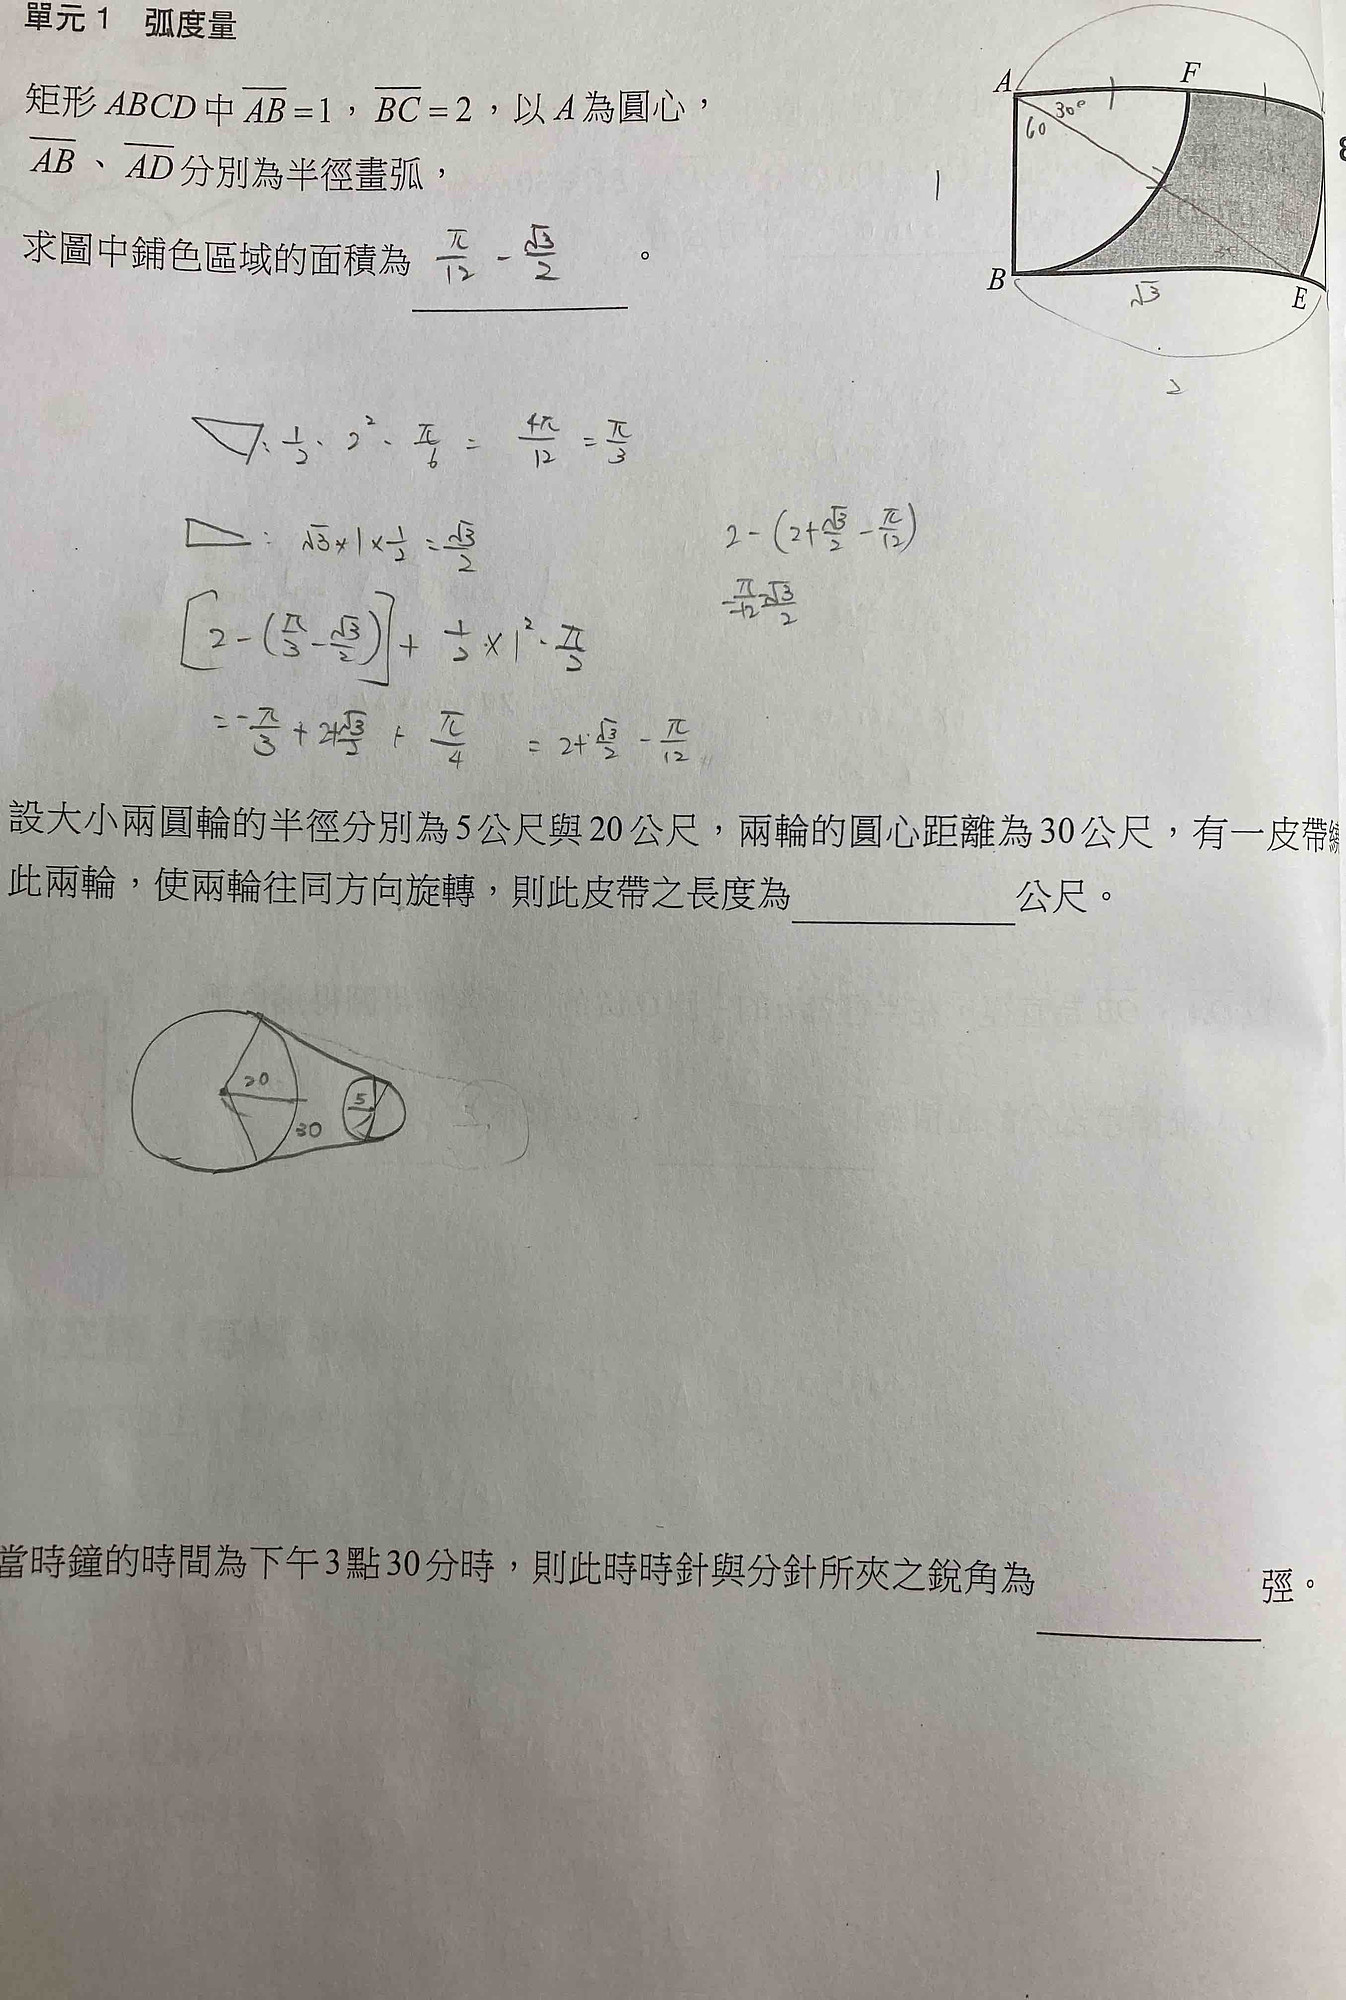 單元 1 弧度量
矩形 ABCD 中 AB = 1，BC = 2，以 A 為圓心，
AB、AD 分別為半徑畫弧，
求圖中鋪色區域的面積為 π/12 - √3/2 。
A F
60 30°
1
B √3 E
2
: 1/2 · 2² · π/6 = 4π/12 = π/3
: √3 × 1 × 1/2 = √3/2
2 - (2 + √3/2 - π/12)
[2 - (π/3 - √3/2)] + 1/2 × 1² · π/2
= -π/3 + 2 + √3/2 + π/4 = 2 + √3/2 - π/12
設大小兩圓輪的半徑分別為 5 公尺與 20 公尺，兩輪的圓心距離為 30 公尺，有一皮帶繞
此兩輪，使兩輪往同方向旋轉，則此皮帶之長度為 公尺。
20 5
30
當時鐘的時間為下午 3 點 30 分時，則此時時針與分針所夾之銳角為 弳。